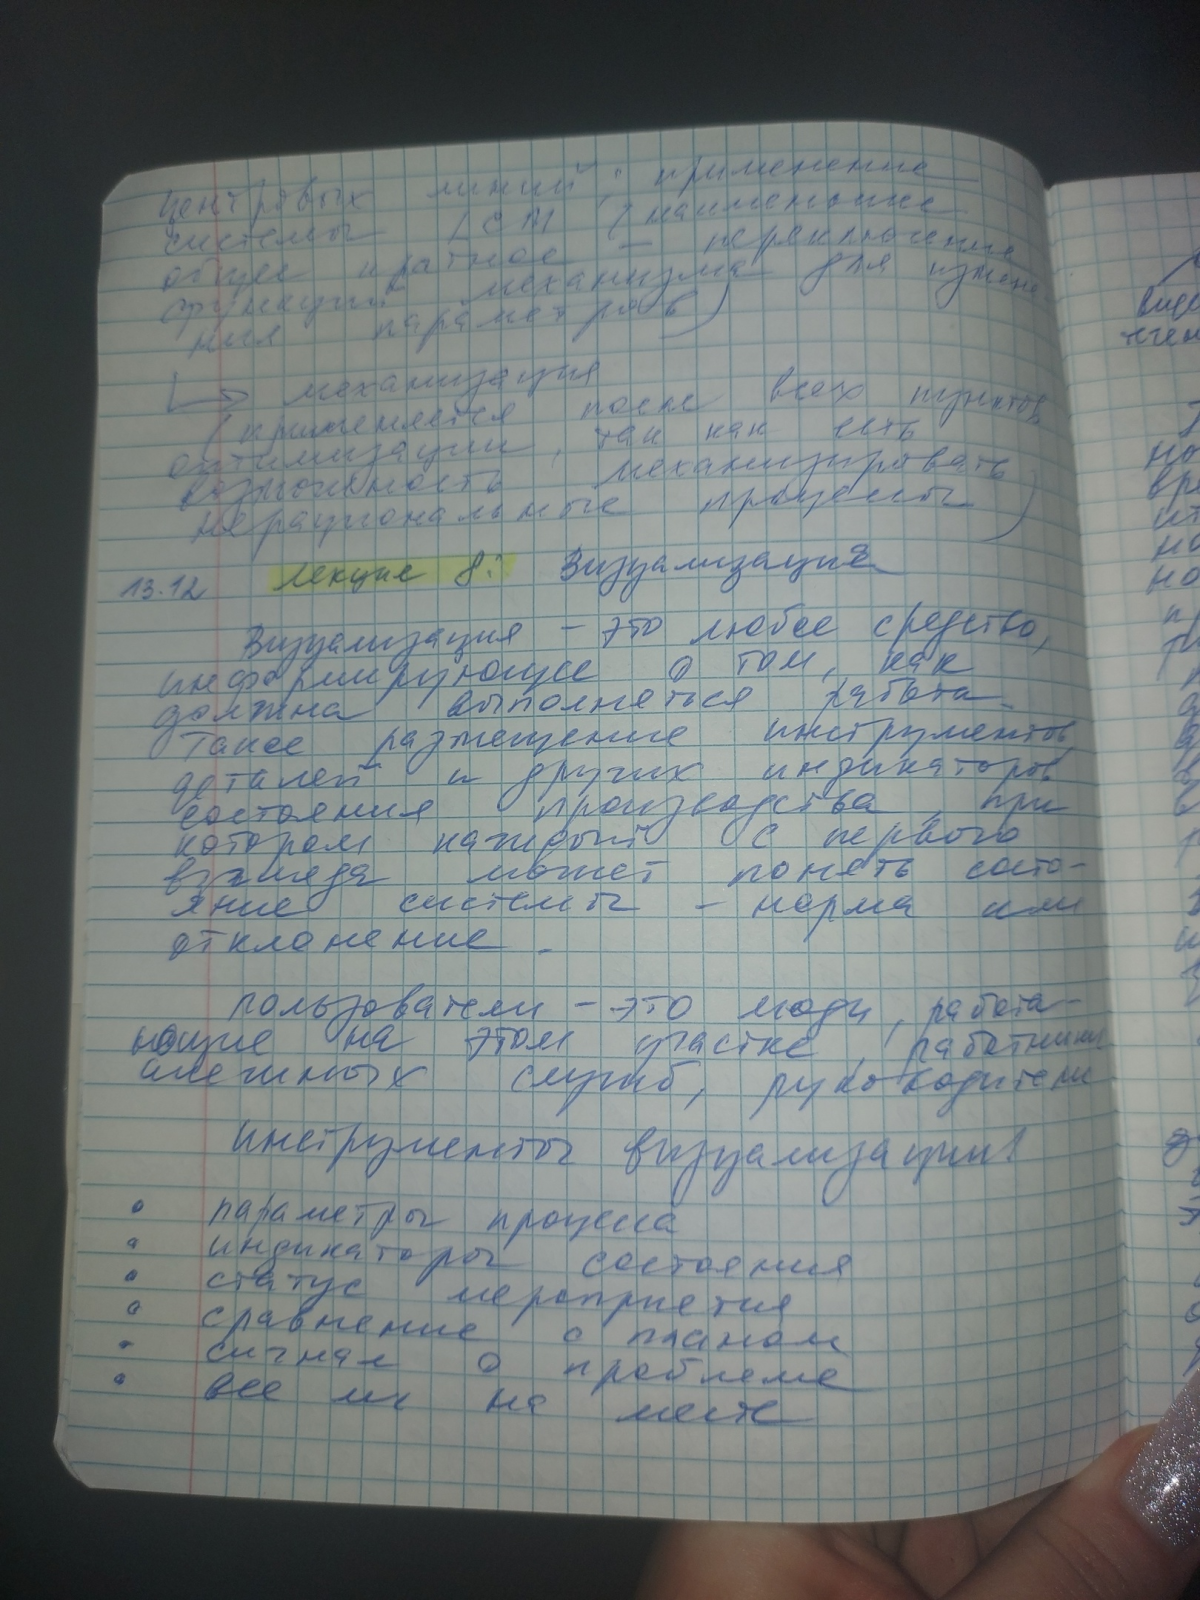 центровых линий, применение
системы LCM (наименьшее
общее кратное – переключение
функций механизма для измене-
ния параметров)
↳ механизация
(применяется после всех пунктов
оптимизации, так как есть
возможность механизировать
нерациональные процессы)
13.12 Лекция 8: Визуализация
Визуализация – это любое средство,
информирующее о том, как
должна выполняться работа.
Такое размещение инструментов,
деталей и других индикаторов
состояния производства, при
котором каждый с первого
взгляда может понять состо-
яние системы – норма или
отклонение.
Пользователи – это люди, работа-
ющие на этом участке, работники
смежных служб, руководители
Инструменты визуализации:
• параметры процесса
• индикаторы состояния
• статус мероприятия
• сравнение с планом
• сигнал о проблеме
• все ли на месте